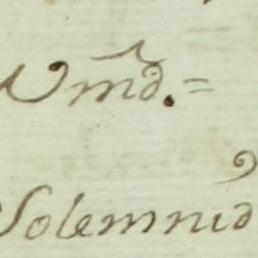 Vmd.=
Solemnid